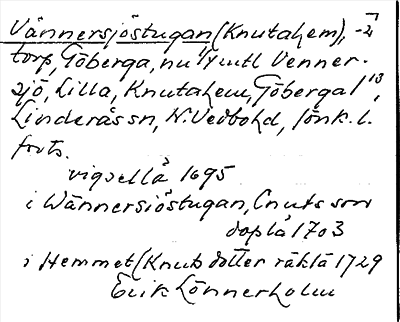 Vännersjöstugan (Knutahem), -
torp, Göberga, nu 1/1 mtl Venner-
sjö, Lilla, Knutahem, Göberga 1¹³,
Linderås sn, N. Vedbo hd, Jönk. l.
forts.
vigsella 1695
i Wännersiöstugan, Cnuts son
dopla 1703
i Hemmet (Knuts dotter räkla 1729
Erik Lönnerholm